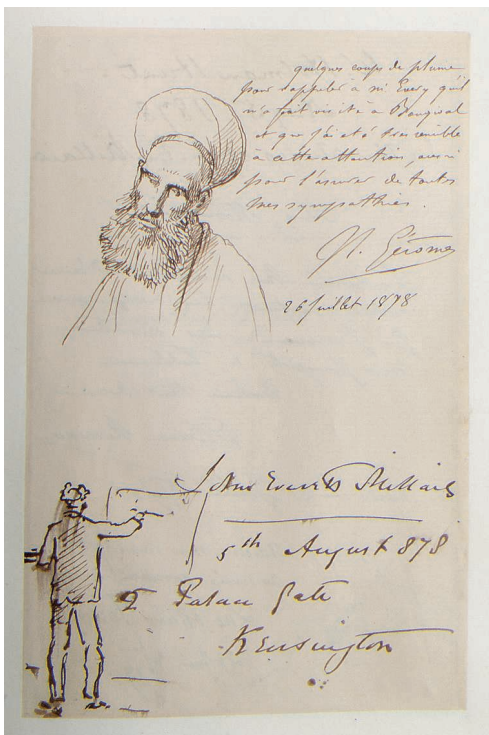 quelques coups de plume
pour rappeler à mr Every qu'il
m'a fait visite à Bougival
et que j'ai été très sensible
à cette attention, aussi
pour l'assurer de toutes
mes sympathies.
Gérome
26 juillet 1878
John Everett Millais
5th August 1878
2 Palace Gate
Kensington